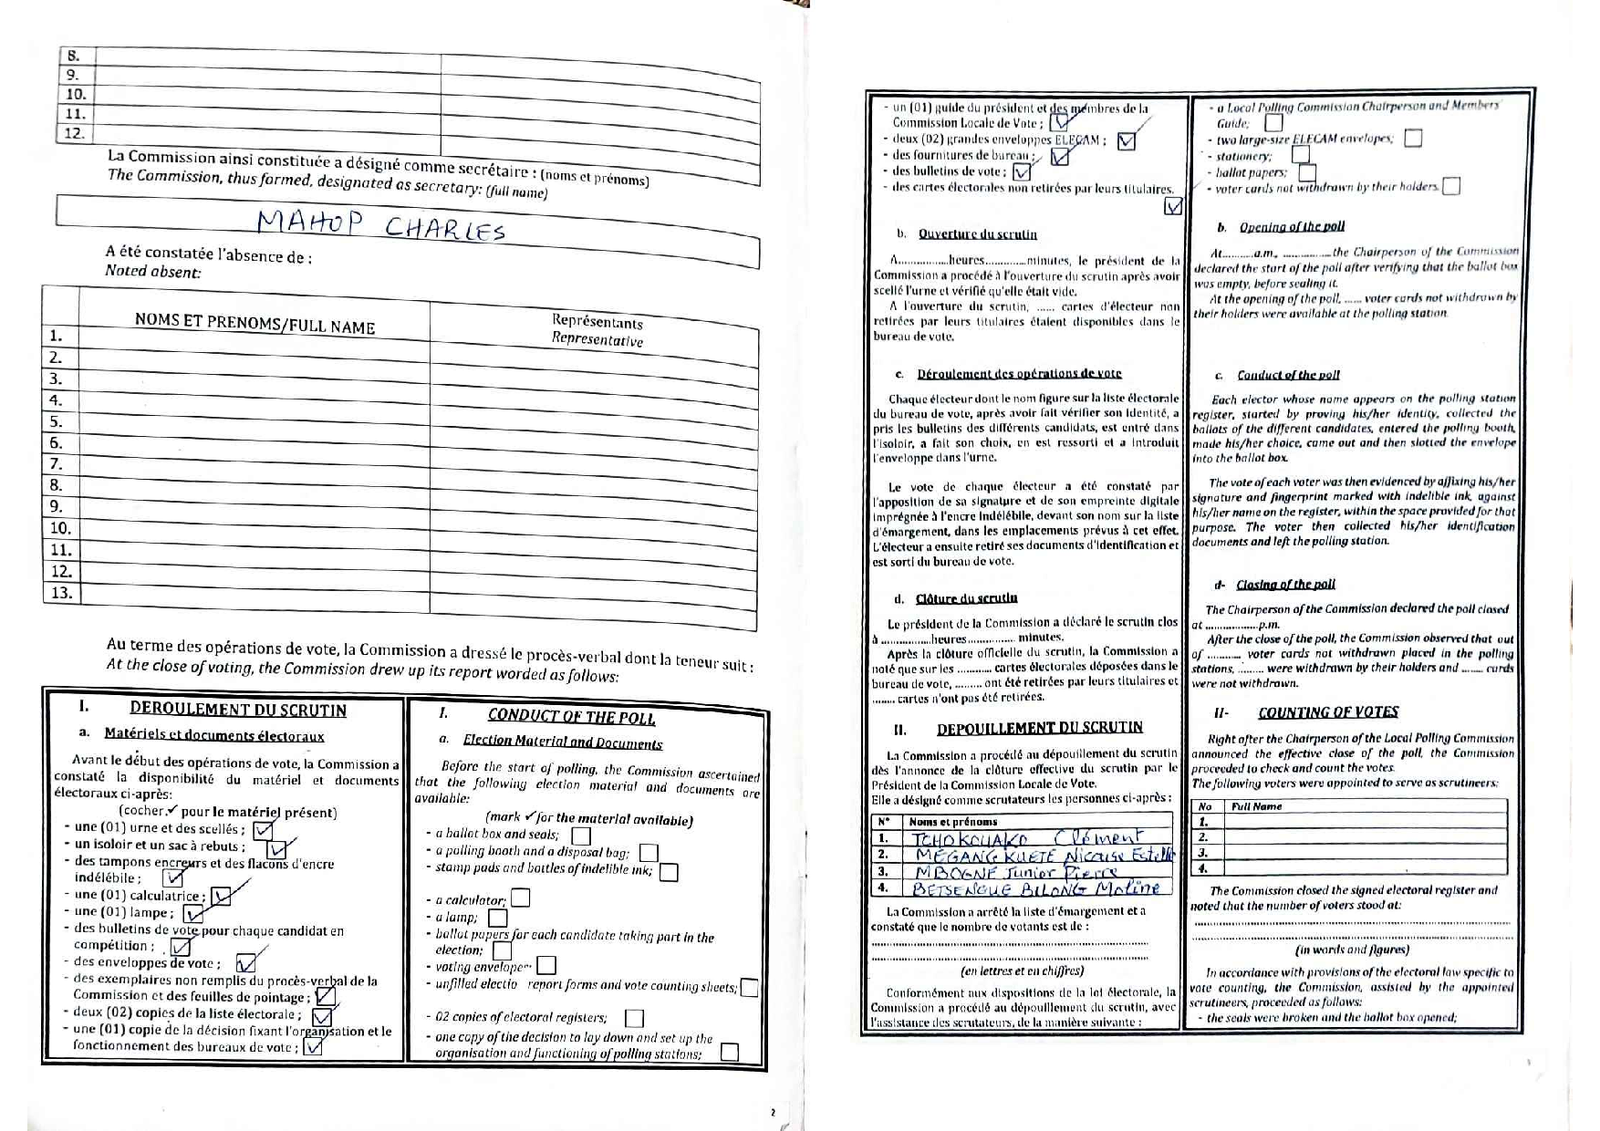 8.
9.
10.
11.
12.
La Commission ainsi constituée a désigné comme secrétaire : (noms et prénoms)
The Commission, thus formed, designated as secretary: (full name)
MAHOP CHARLES
A été constatée l'absence de :
Noted absent:
NOMS ET PRENOMS/FULL NAME
Représentants
Representative
1.
2.
3.
4.
5.
6.
7.
8.
9.
10.
11.
12.
13.
Au terme des opérations de vote, la Commission a dressé le procès-verbal dont la teneur suit :
At the close of voting, the Commission drew up its report worded as follows:
I. DEROULEMENT DU SCRUTIN
a. Matériels et documents électoraux
Avant le début des opérations de vote, la Commission a
constaté la disponibilité du matériel et documents
électoraux ci-après:
(cocher ✓ pour le matériel présent)
- une (01) urne et des scellés ; ☑
- un isoloir et un sac à rebuts ; ☑
- des tampons encreurs et des flacons d'encre
indélébile ; ☑
- une (01) calculatrice ; ☑
- une (01) lampe ; ☑
- des bulletins de vote pour chaque candidat en
compétition ; ☑
- des enveloppes de vote ; ☑
- des exemplaires non remplis du procès-verbal de la
Commission et des feuilles de pointage ; ☑
- deux (02) copies de la liste électorale ; ☑
- une (01) copie de la décision fixant l'organisation et le
fonctionnement des bureaux de vote ; ☑
I. CONDUCT OF THE POLL
a. Election Material and Documents
Before the start of polling, the Commission ascertained
that the following election material and documents are
available:
(mark ✓ for the material available)
- a ballot box and seals; ☐
- a polling booth and a disposal bag; ☐
- stamp pads and bottles of indelible ink; ☐
- a calculator; ☐
- a lamp; ☐
- ballot papers for each candidate taking part in the
election; ☐
- voting envelope ☐
- unfilled electio report forms and vote counting sheets; ☐
- 02 copies of electoral registers; ☐
- one copy of the decision to lay down and set up the
organisation and functioning of polling stations; ☐
2
- un (01) guide du président et des membres de la
Commission Locale de Vote ; ☑
- deux (02) grandes enveloppes ELECAM ; ☑
- des fournitures de bureau ; ☑
- des bulletins de vote ; ☑
- des cartes électorales non retirées par leurs titulaires.
☑
b. Ouverture du scrutin
A..............heures.............minutes, le président de la
Commission a procédé à l'ouverture du scrutin après avoir
scellé l'urne et vérifié qu'elle était vide.
A l'ouverture du scrutin, ...... cartes d'électeur non
retirées par leurs titulaires étaient disponibles dans le
bureau de vote.
c. Déroulement des opérations de vote
Chaque électeur dont le nom figure sur la liste électorale
du bureau de vote, après avoir fait vérifier son identité, a
pris les bulletins des différents candidats, est entré dans
l'isoloir, a fait son choix, en est ressorti et a introduit
l'enveloppe dans l'urne.
Le vote de chaque électeur a été constaté par
l'apposition de sa signature et de son empreinte digitale
imprégnée à l'encre indélébile, devant son nom sur la liste
d'émargement, dans les emplacements prévus à cet effet.
L'électeur a ensuite retiré ses documents d'identification et
est sorti du bureau de vote.
d. Clôture du scrutin
Le président de la Commission a déclaré le scrutin clos
à ..............heures.............. minutes.
Après la clôture officielle du scrutin, la Commission a
noté que sur les .......... cartes électorales déposées dans le
bureau de vote, ......... ont été retirées par leurs titulaires et
........ cartes n'ont pas été retirées.
II. DEPOUILLEMENT DU SCRUTIN
La Commission a procédé au dépouillement du scrutin
dès l'annonce de la clôture effective du scrutin par le
Président de la Commission Locale de Vote.
Elle a désigné comme scrutateurs les personnes ci-après :
N° Noms et prénoms
1. TCHOKOUAKO Clément
2. MEGANG KUETE Nicaise Estelle
3. MBOGNE Junior Pierre
4. BETSENGUE BILONG Moline
La Commission a arrêté la liste d'émargement et a
constaté que le nombre de votants est de :
(en lettres et en chiffres)
Conformément aux dispositions de la loi électorale, la
Commission a procédé au dépouillement du scrutin, avec
l'assistance des scrutateurs, de la manière suivante :
- a Local Polling Commission Chairperson and Members
Guide; ☐
- two large-size ELECAM envelopes; ☐
- stationery; ☐
- ballot papers; ☐
- voter cards not withdrawn by their holders. ☐
b. Opening of the poll
At.........a.m., ..............the Chairperson of the Commission
declared the start of the poll after verifying that the ballot box
was empty, before sealing it.
At the opening of the poll, ...... voter cards not withdrawn by
their holders were available at the polling station.
c. Conduct of the poll
Each elector whose name appears on the polling station
register, started by proving his/her identity, collected the
ballots of the different candidates, entered the polling booth,
made his/her choice, came out and then slotted the envelope
into the ballot box.
The vote of each voter was then evidenced by affixing his/her
signature and fingerprint marked with indelible ink, against
his/her name on the register, within the space provided for that
purpose. The voter then collected his/her identification
documents and left the polling station.
d- Closing of the poll
The Chairperson of the Commission declared the poll closed
at ................p.m.
After the close of the poll, the Commission observed that out
of .......... voter cards not withdrawn placed in the polling
stations, ........ were withdrawn by their holders and ....... cards
were not withdrawn.
II- COUNTING OF VOTES
Right after the Chairperson of the Local Polling Commission
announced the effective close of the poll, the Commission
proceeded to check and count the votes.
The following voters were appointed to serve as scrutineers:
No Full Name
1.
2.
3.
4.
The Commission closed the signed electoral register and
noted that the number of voters stood at:
(in words and figures)
In accordance with provisions of the electoral law specific to
vote counting, the Commission, assisted by the appointed
scrutineers, proceeded as follows:
- the seals were broken and the ballot box opened;